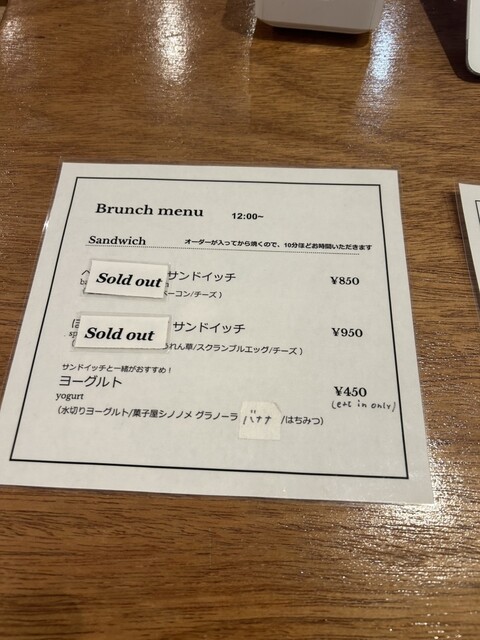 Brunch menu 12:00~
Sandwich オーダーが入ってから焼くので、10分ほどお時間いただきます
Sold out サンドイッチ ¥850
ーコン/チーズ )
Sold out サンドイッチ ¥950
れん草/スクランブルエッグ/チーズ )
サンドイッチと一緒がおすすめ!
ヨーグルト ¥450
yogurt (eat in only)
(水切りヨーグルト/菓子屋シノノメ グラノーラ バナナ /はちみつ)